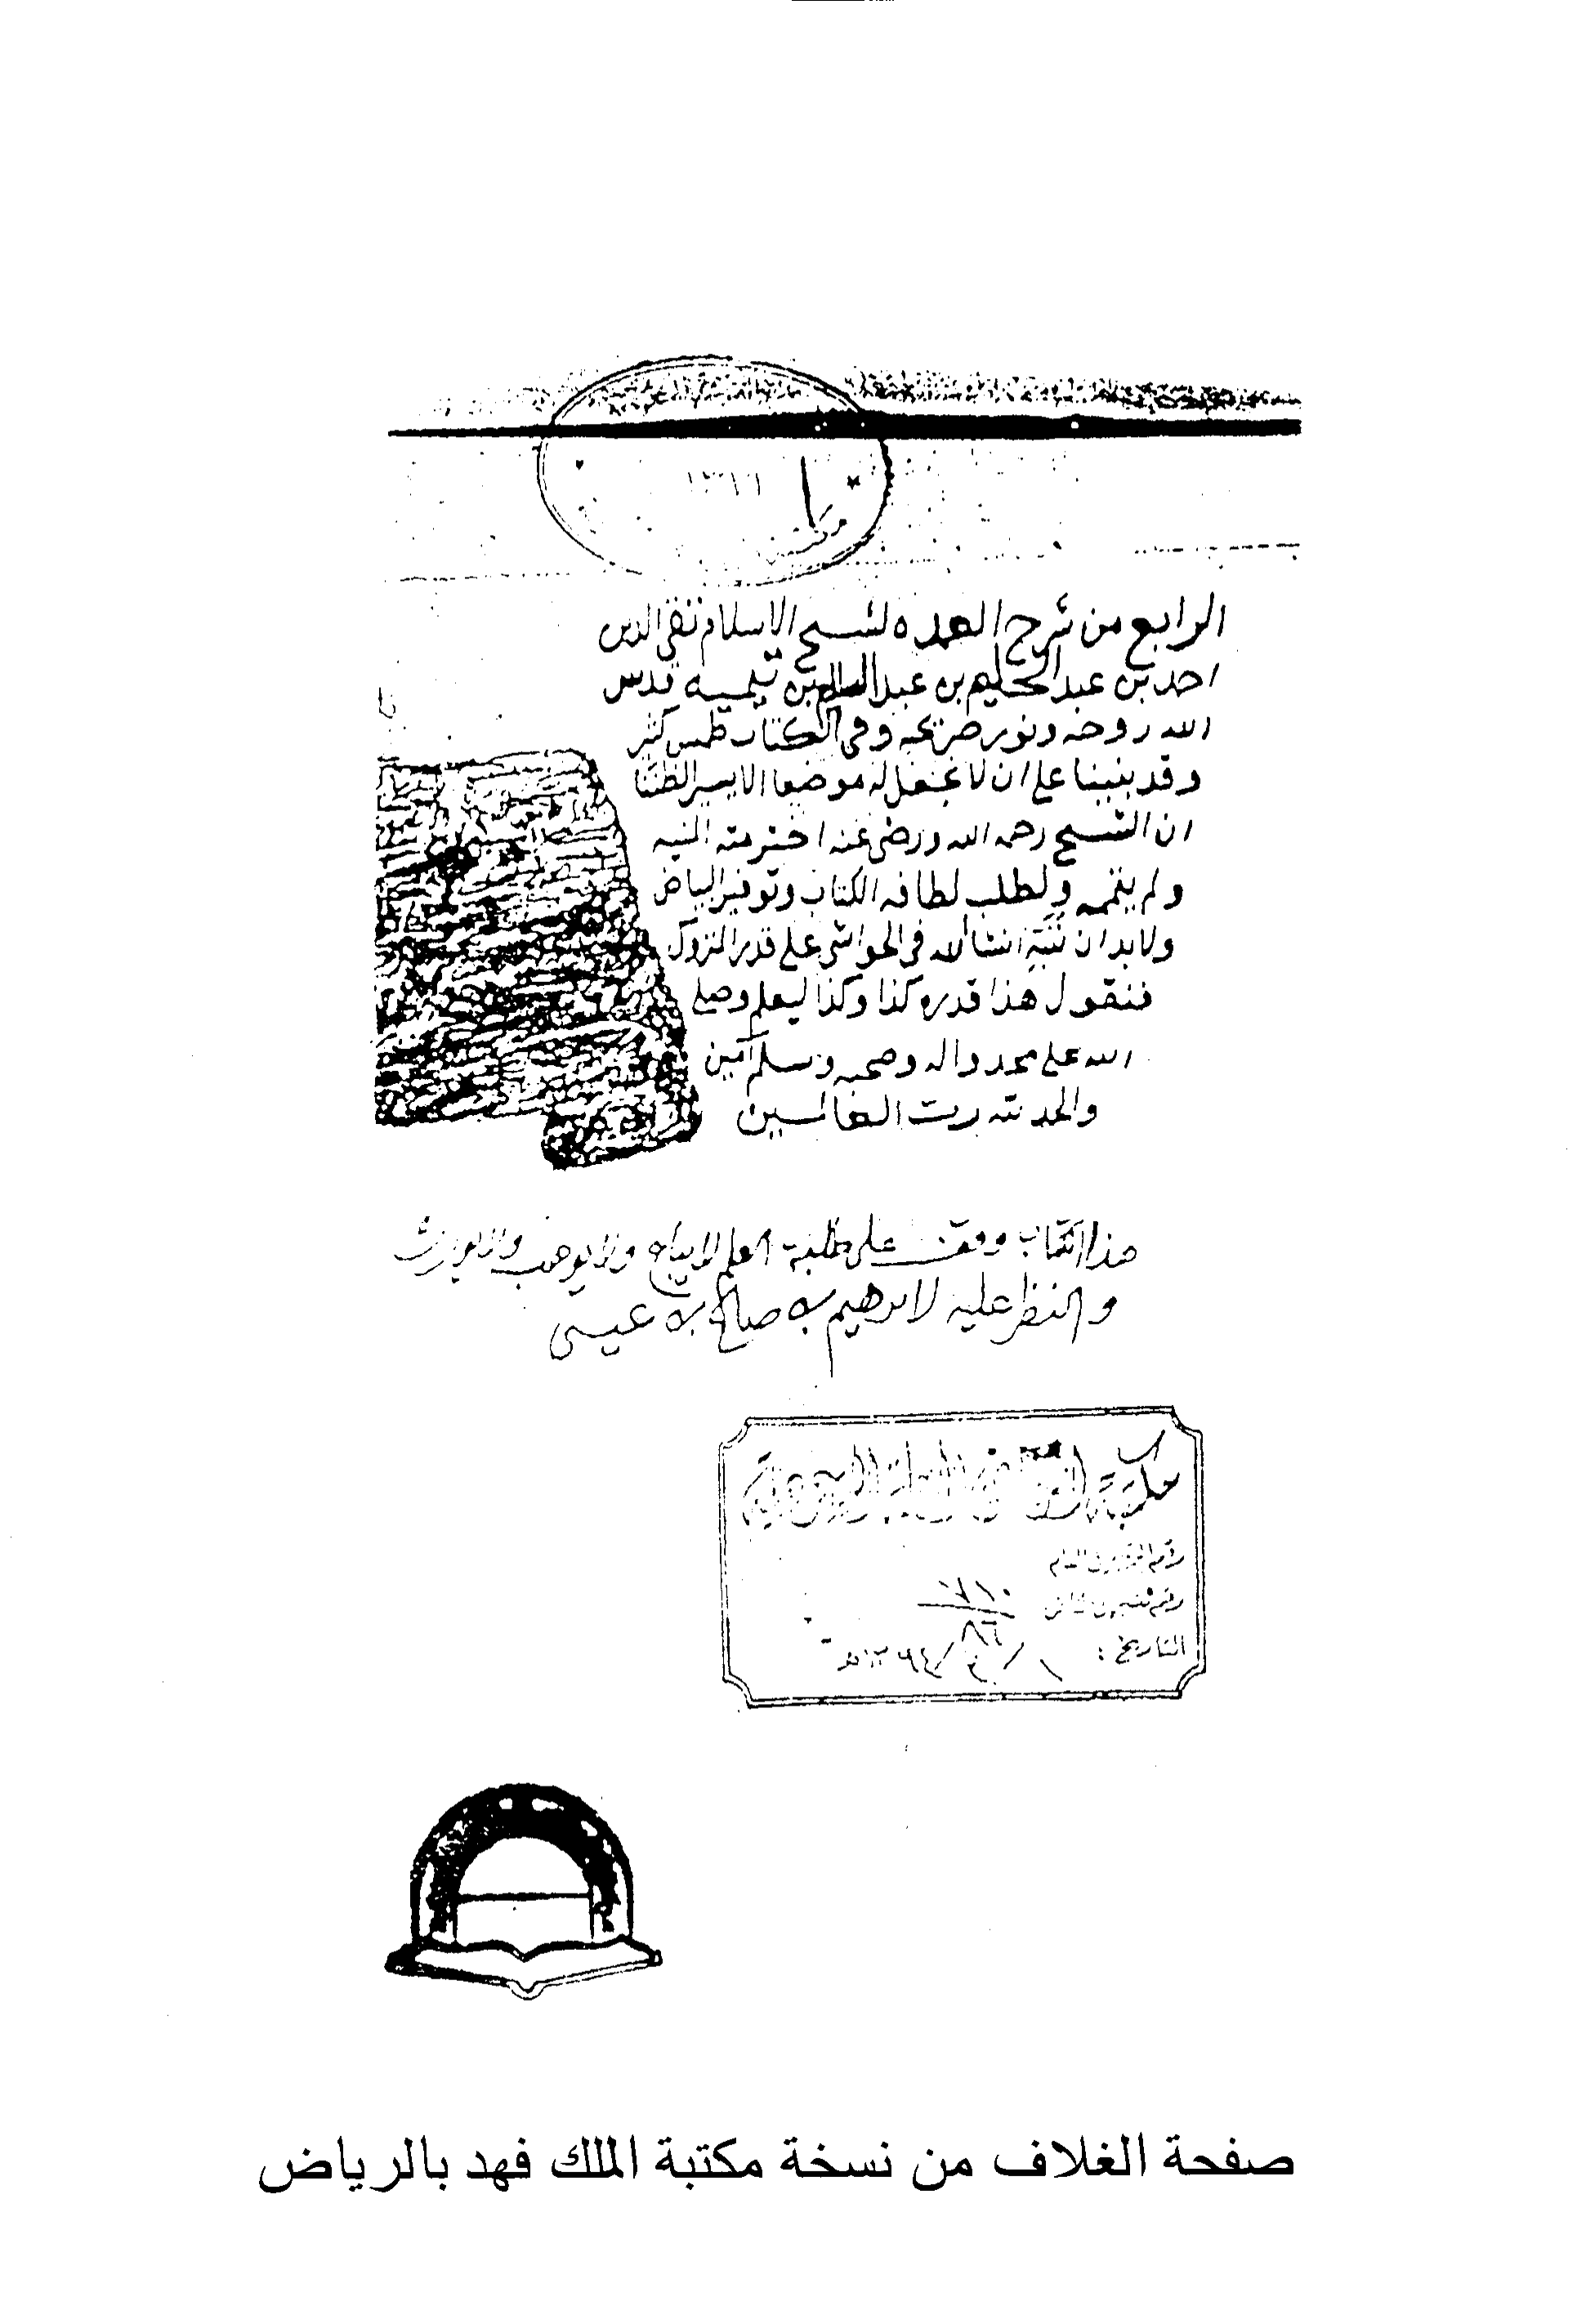 ١٣٦٦
مكتبة
الرابع من شرح العمده لشيخ الاسلام تقي الدين
احمد بن عبد الحليم بن عبد السلام بن تيميه قدس
الله روحه ونور ضريحه وفي الكتاب طمس كثير
وقد بنينا على ان لا نجعل له موضعا الا يسير لظننا
ان الشيخ رحمه الله ورضي عنه اخترمته المنيه
ولم يتممه ولطلب لطافه الكتاب وتوفير البياض
ولا بد ان ننبه انشا الله في الحواشي على قدر المتروك
فنقول هذا قدره كذا وكذا ليعلم وصلى
الله على محمد واله وصحبه وسلم آمين
والحمد لله رب العالمين
هذا الكتاب وقف على طلبة العلم لا يباع ولا يوهب ولا يورث
والنظر عليه لابرهيم بن صالح بن عيسى
مكتبة السعودية
رقم العام
رقم
التاريخ :
صفحة الغلاف من نسخة مكتبة الملك فهد بالرياض